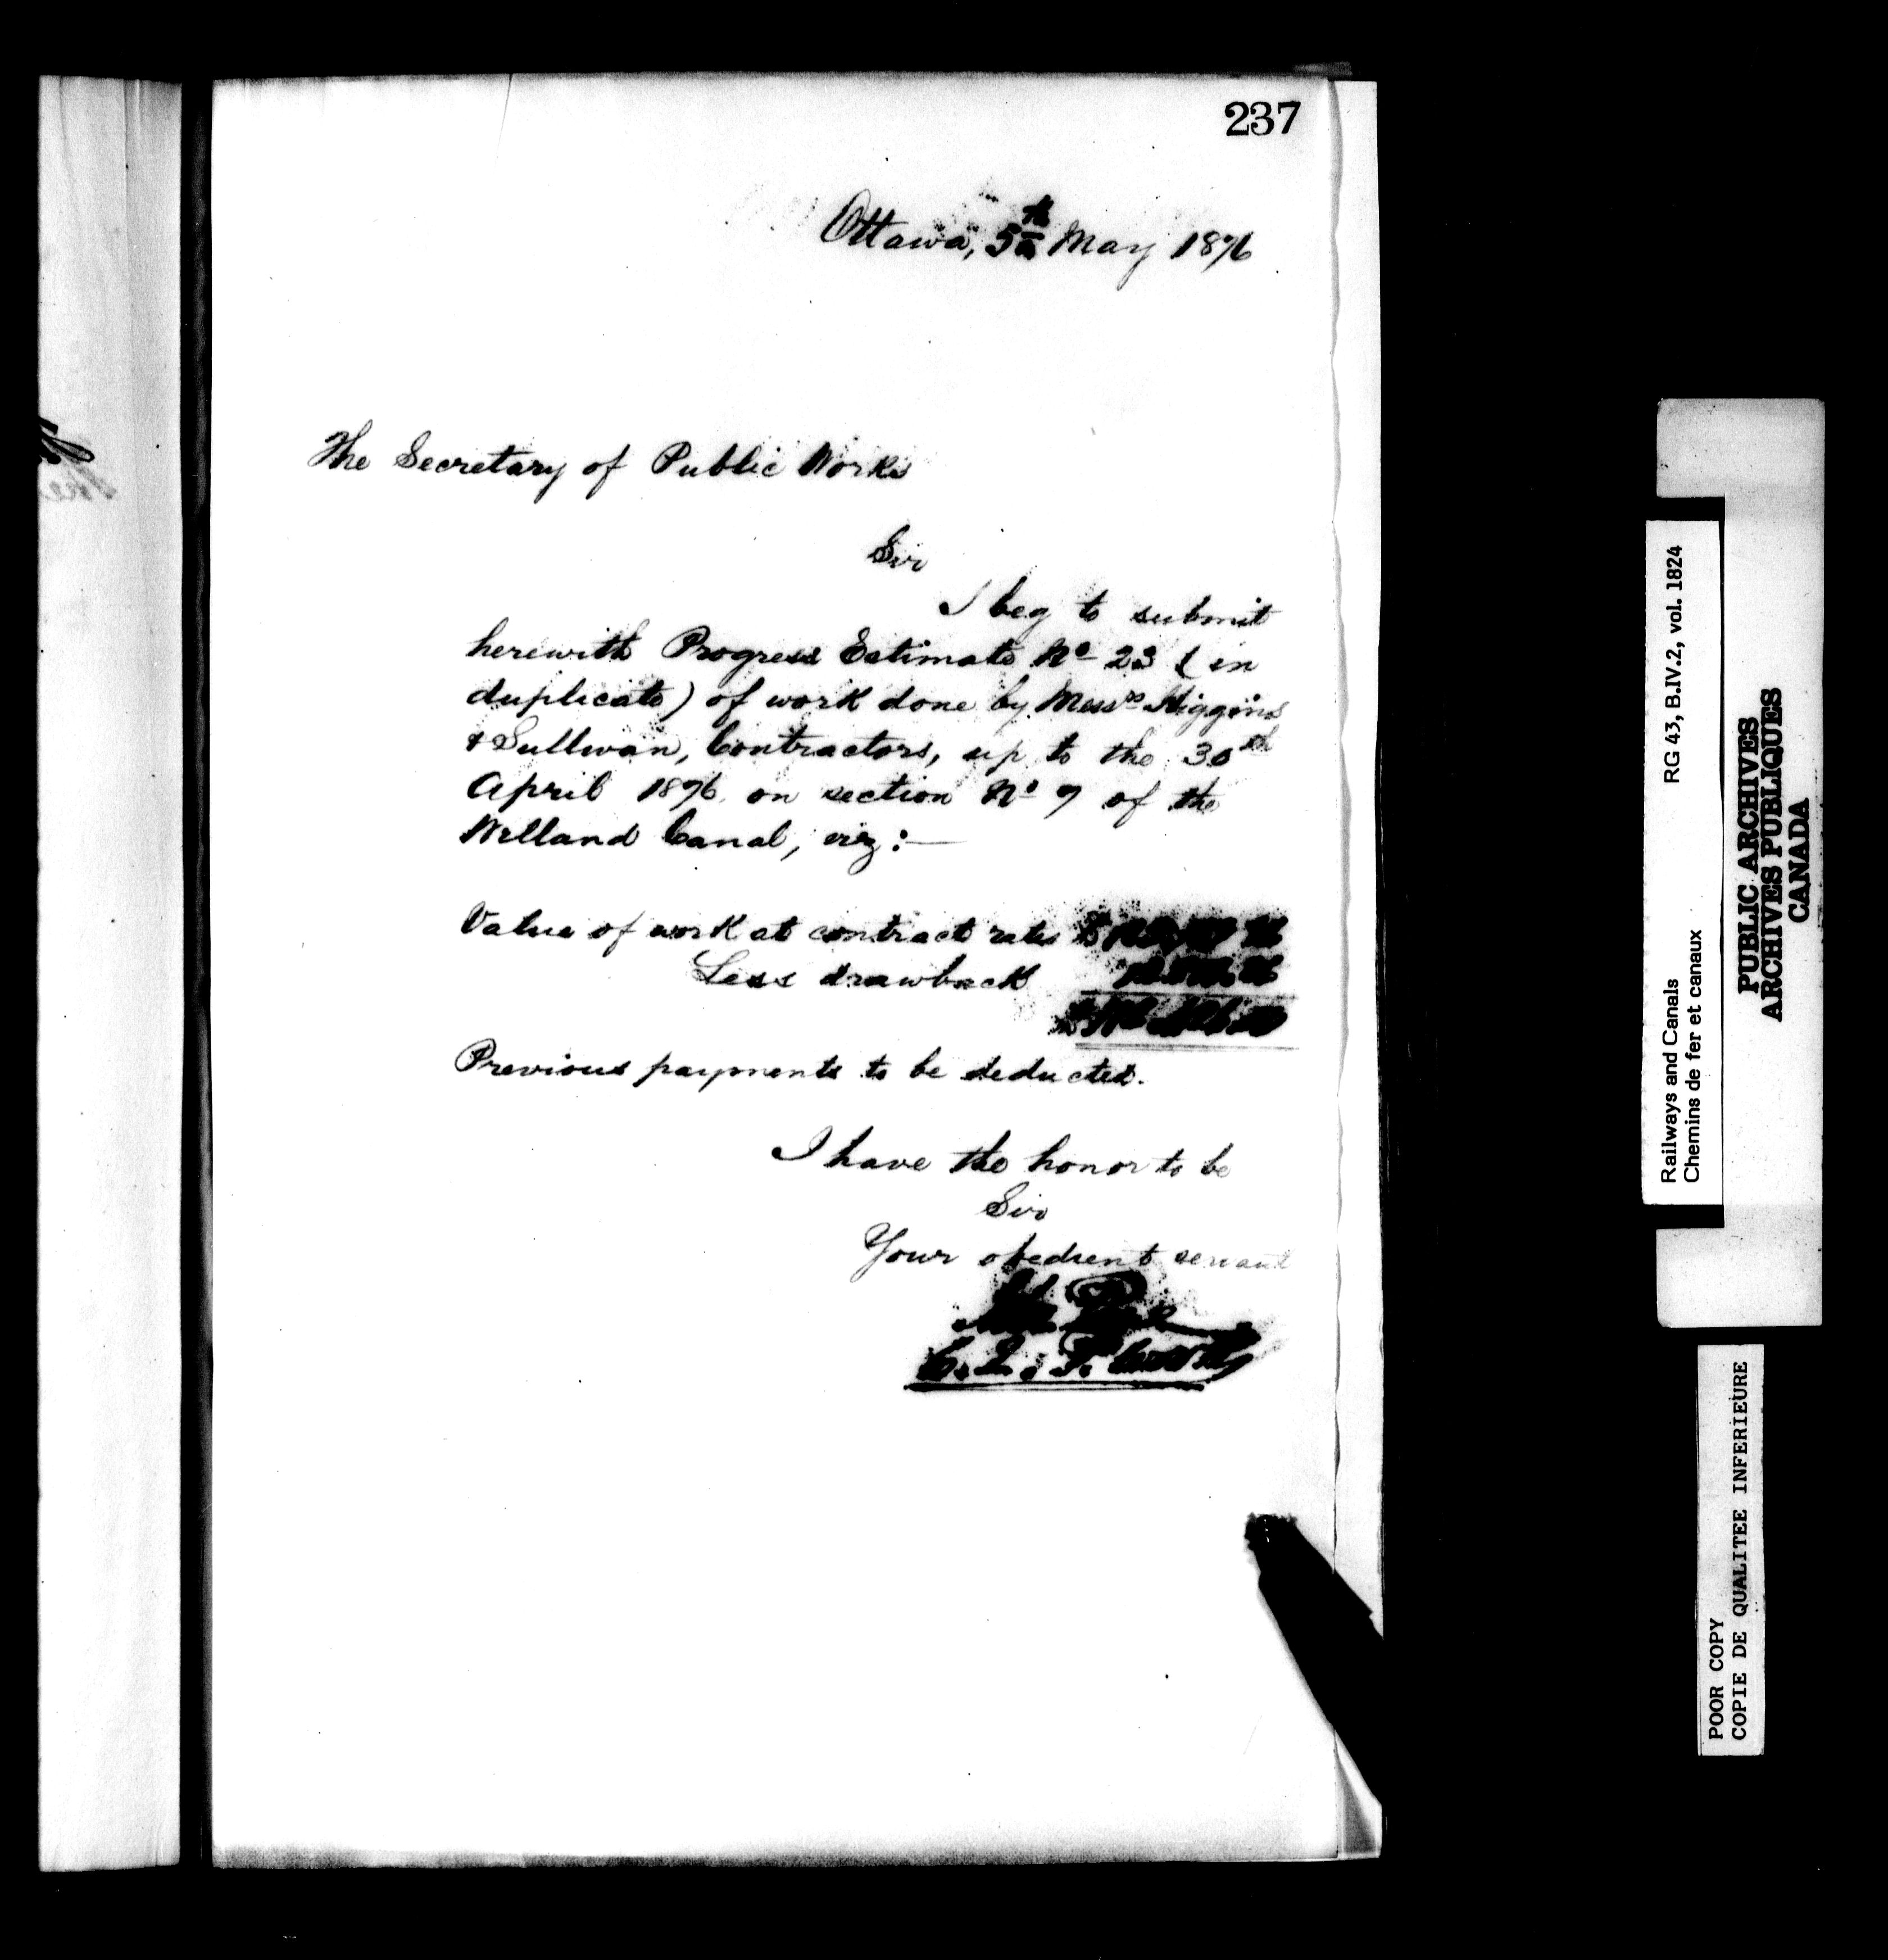 237
Ottawa, 5th May 1876
The Secretary of Public Works
Sir
I beg to submit
herewith Progress Estimate No 23 (in
duplicate) of work done by Messrs Higgins
& Sullivan, Contractors, up to the 30th
April 1876 on section No 7 of the
Welland Canal, viz:—
Value of work at contract rates $
Less drawback
$
Previous payments to be deducted.
I have the honor to be
Sir
Your obedient servant
John Page
C. E. P. Works
RG 43, B.IV.2, vol. 1824
Railways and Canals
Chemins de fer et canaux
PUBLIC ARCHIVES
ARCHIVES PUBLIQUES
CANADA
POOR COPY
COPIE DE QUALITEE INFERIEURE